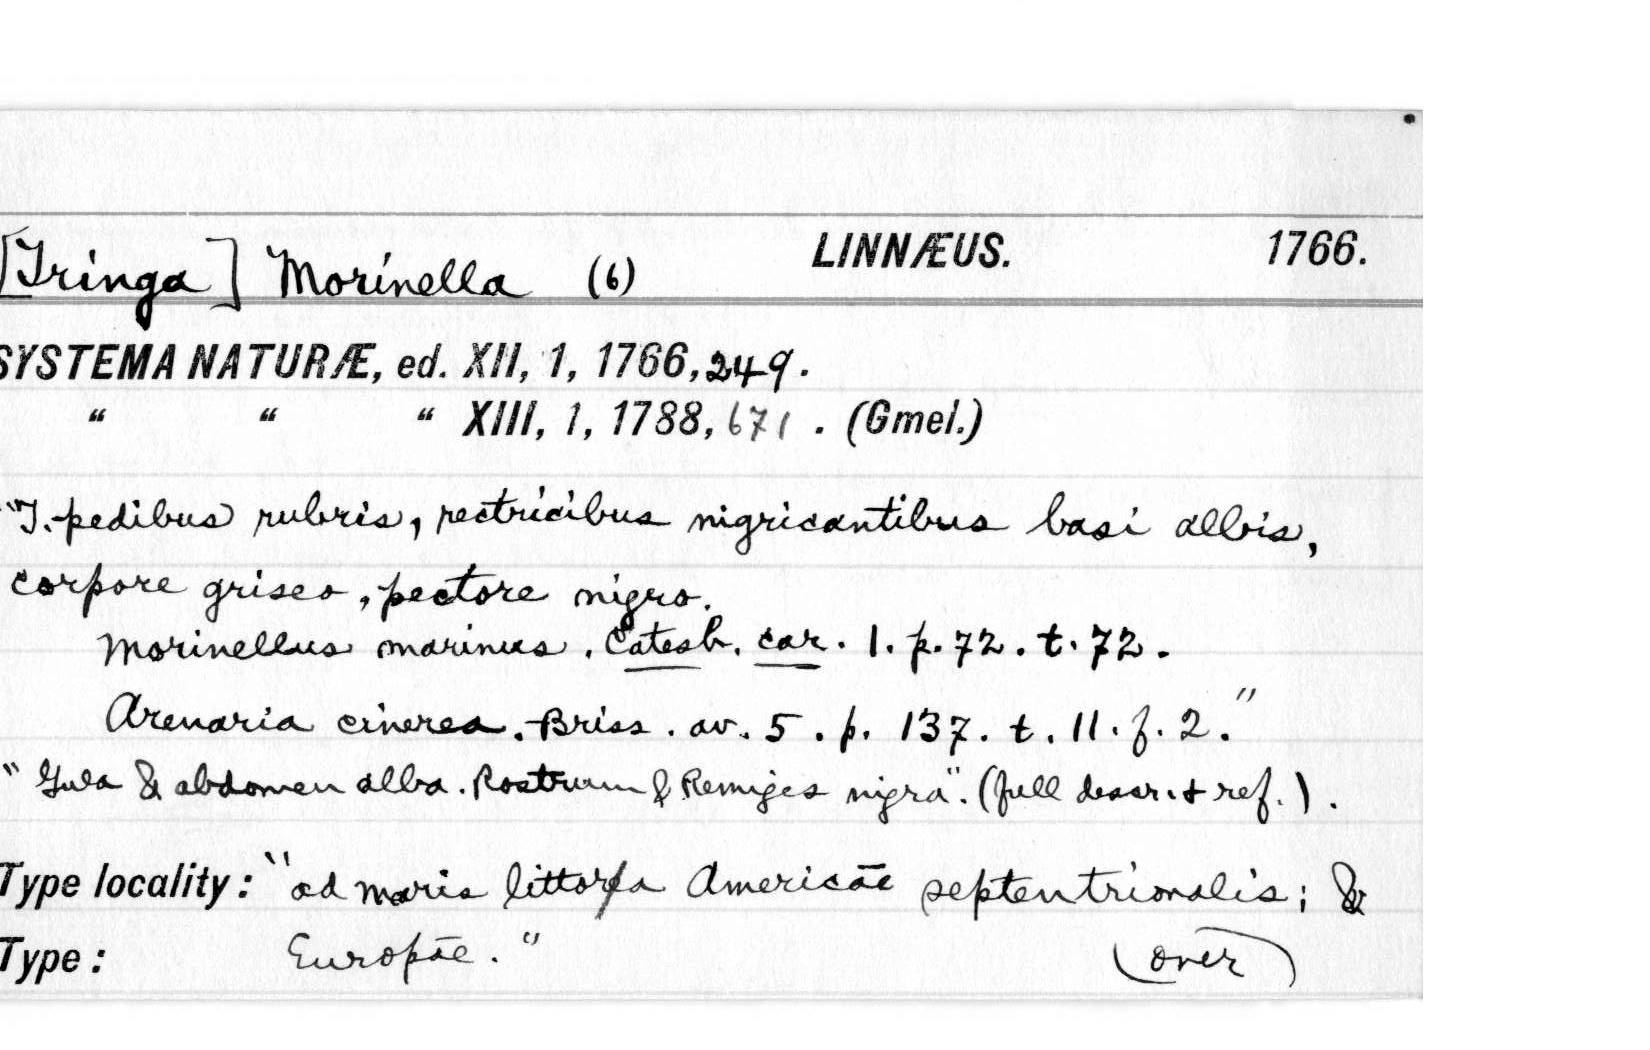 [Tringa] Morinella (6) LINNÆUS. 1766.
SYSTEMA NATURÆ, ed. XII, 1, 1766, 249.
“ “ “ XIII, 1, 1788, 671. (Gmel.)
"T. pedibus rubris, rectricibus nigricantibus basi albis,
corpore griseo, pectore nigro.
Morinellus marinus. Catesb. car. 1. p. 72. t. 72.
Arenaria cinerea. Briss. av. 5. p. 137. t. 11. f. 2."
"Gula & abdomen alba. Rostrum & Remiges nigra". (full descr. + ref.).
Type locality: "ad maris littora Americae septentrionalis; &
Type: Europae." (over)